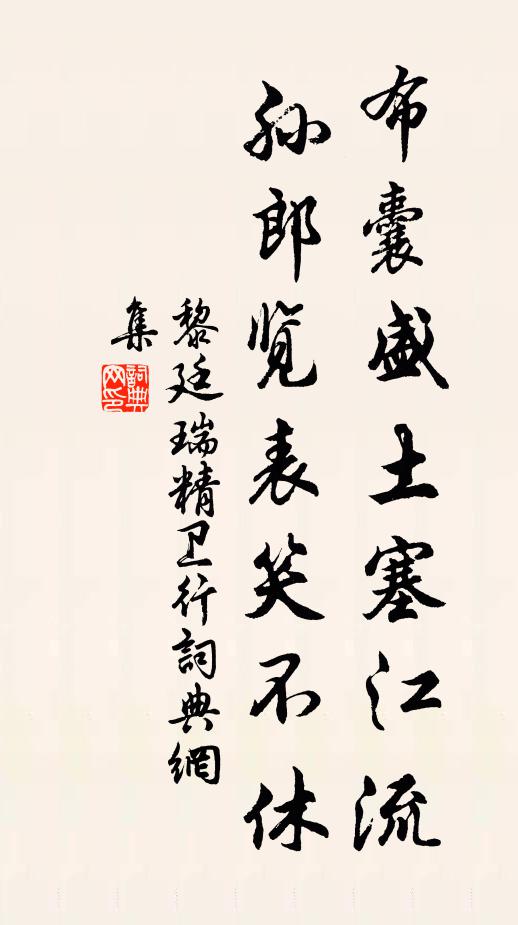 布囊盛土塞江流
孙郎览表笑不休
黎廷瑞精卫行詞典網
集
詞典
网印